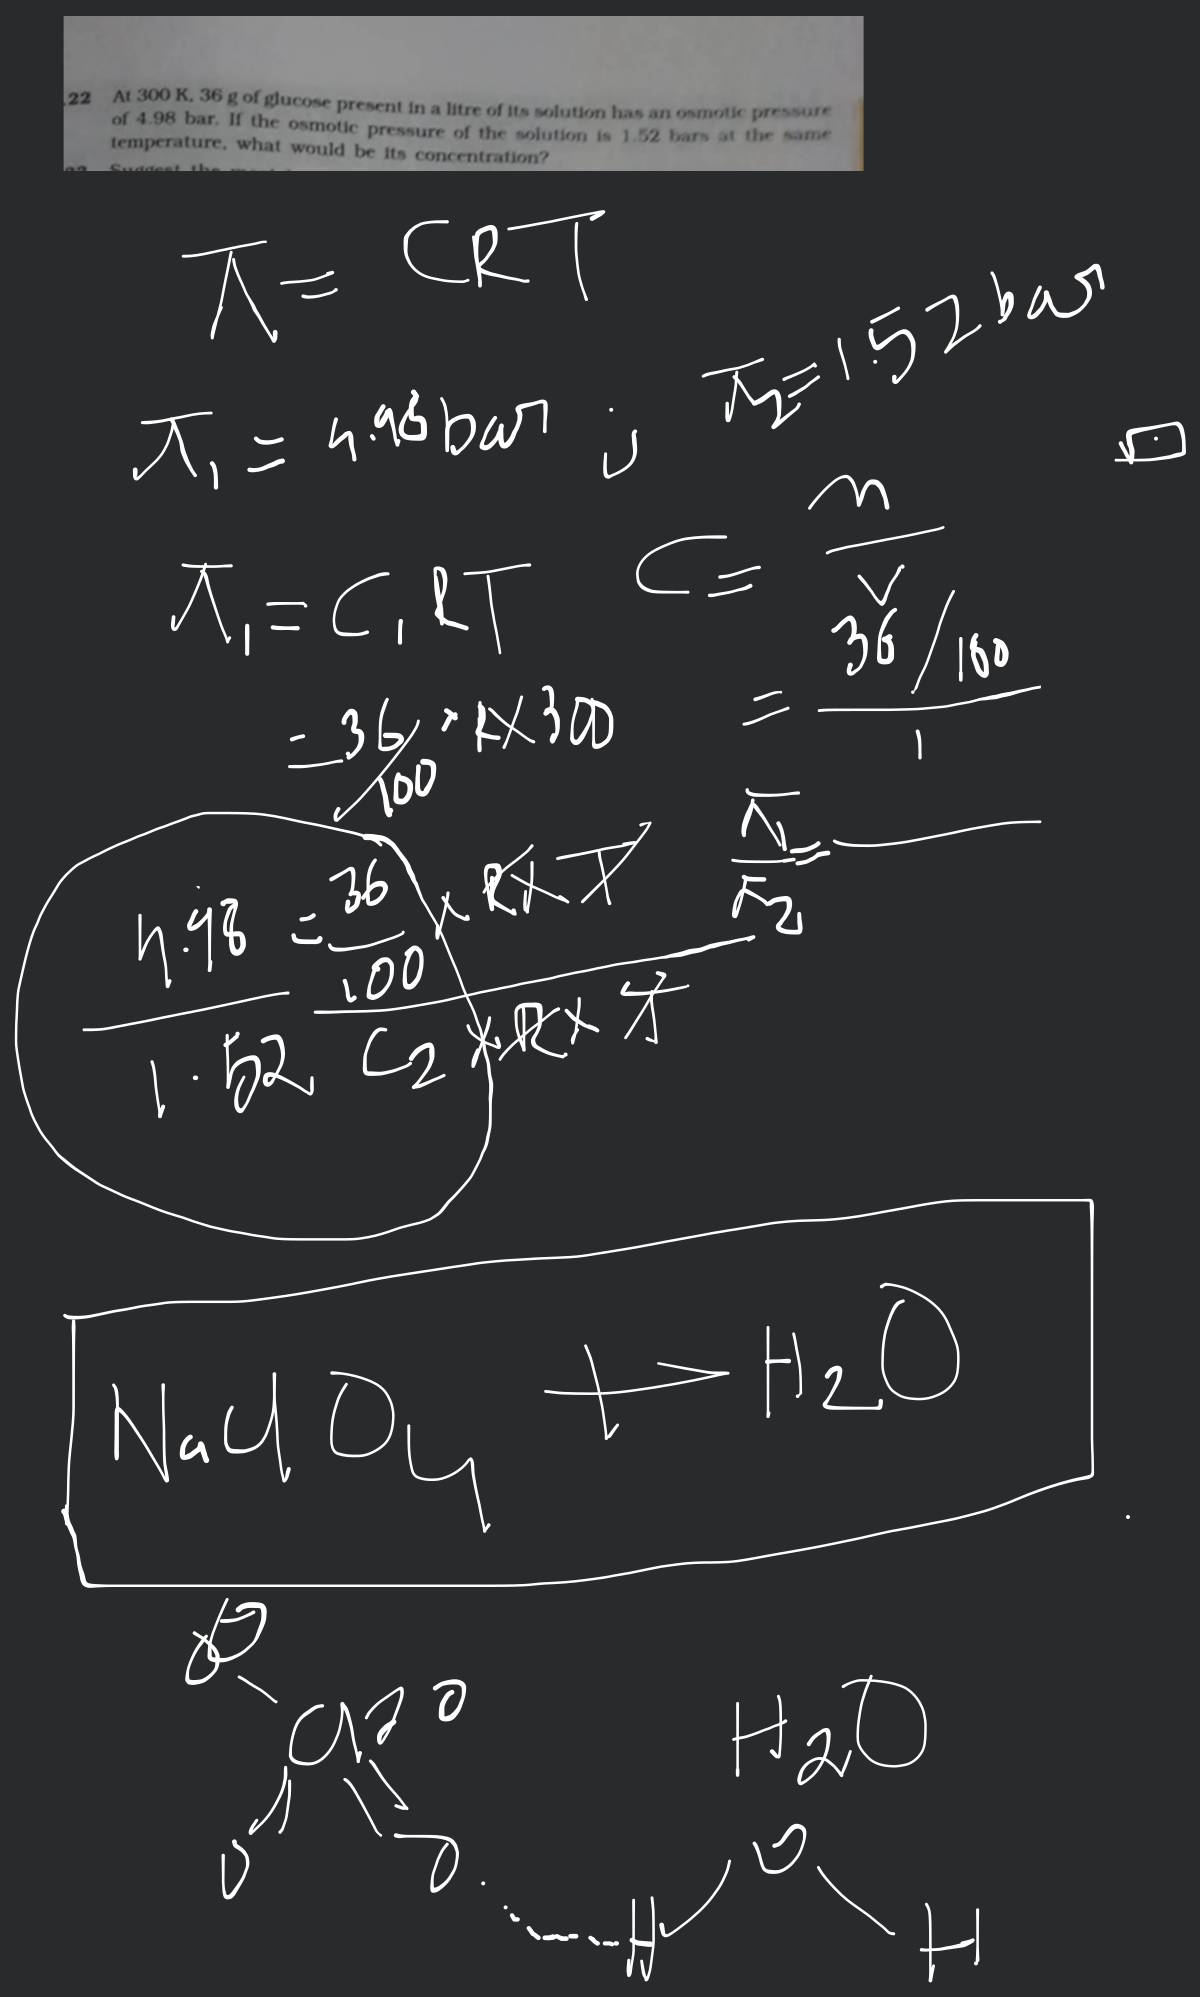 .22 At 300 K, 36 g of glucose present in a litre of its solution has an osmotic pressure
of 4.98 bar. If the osmotic pressure of the solution is 1.52 bars at the same
temperature, what would be its concentration?
π = CRT
π₁ = 4.98 bar ; π₂ = 1.52 bar
π₁ = C₁RT C = n/V
= 36/100 × R × 300 = (36/180)/1
π₁/π₂ =
4.98/1.52 = (36/100 × R × T)/(C₂ × R × T)
NaClO₄ + H₂O
O
Cl = O H₂O
O O O
H H